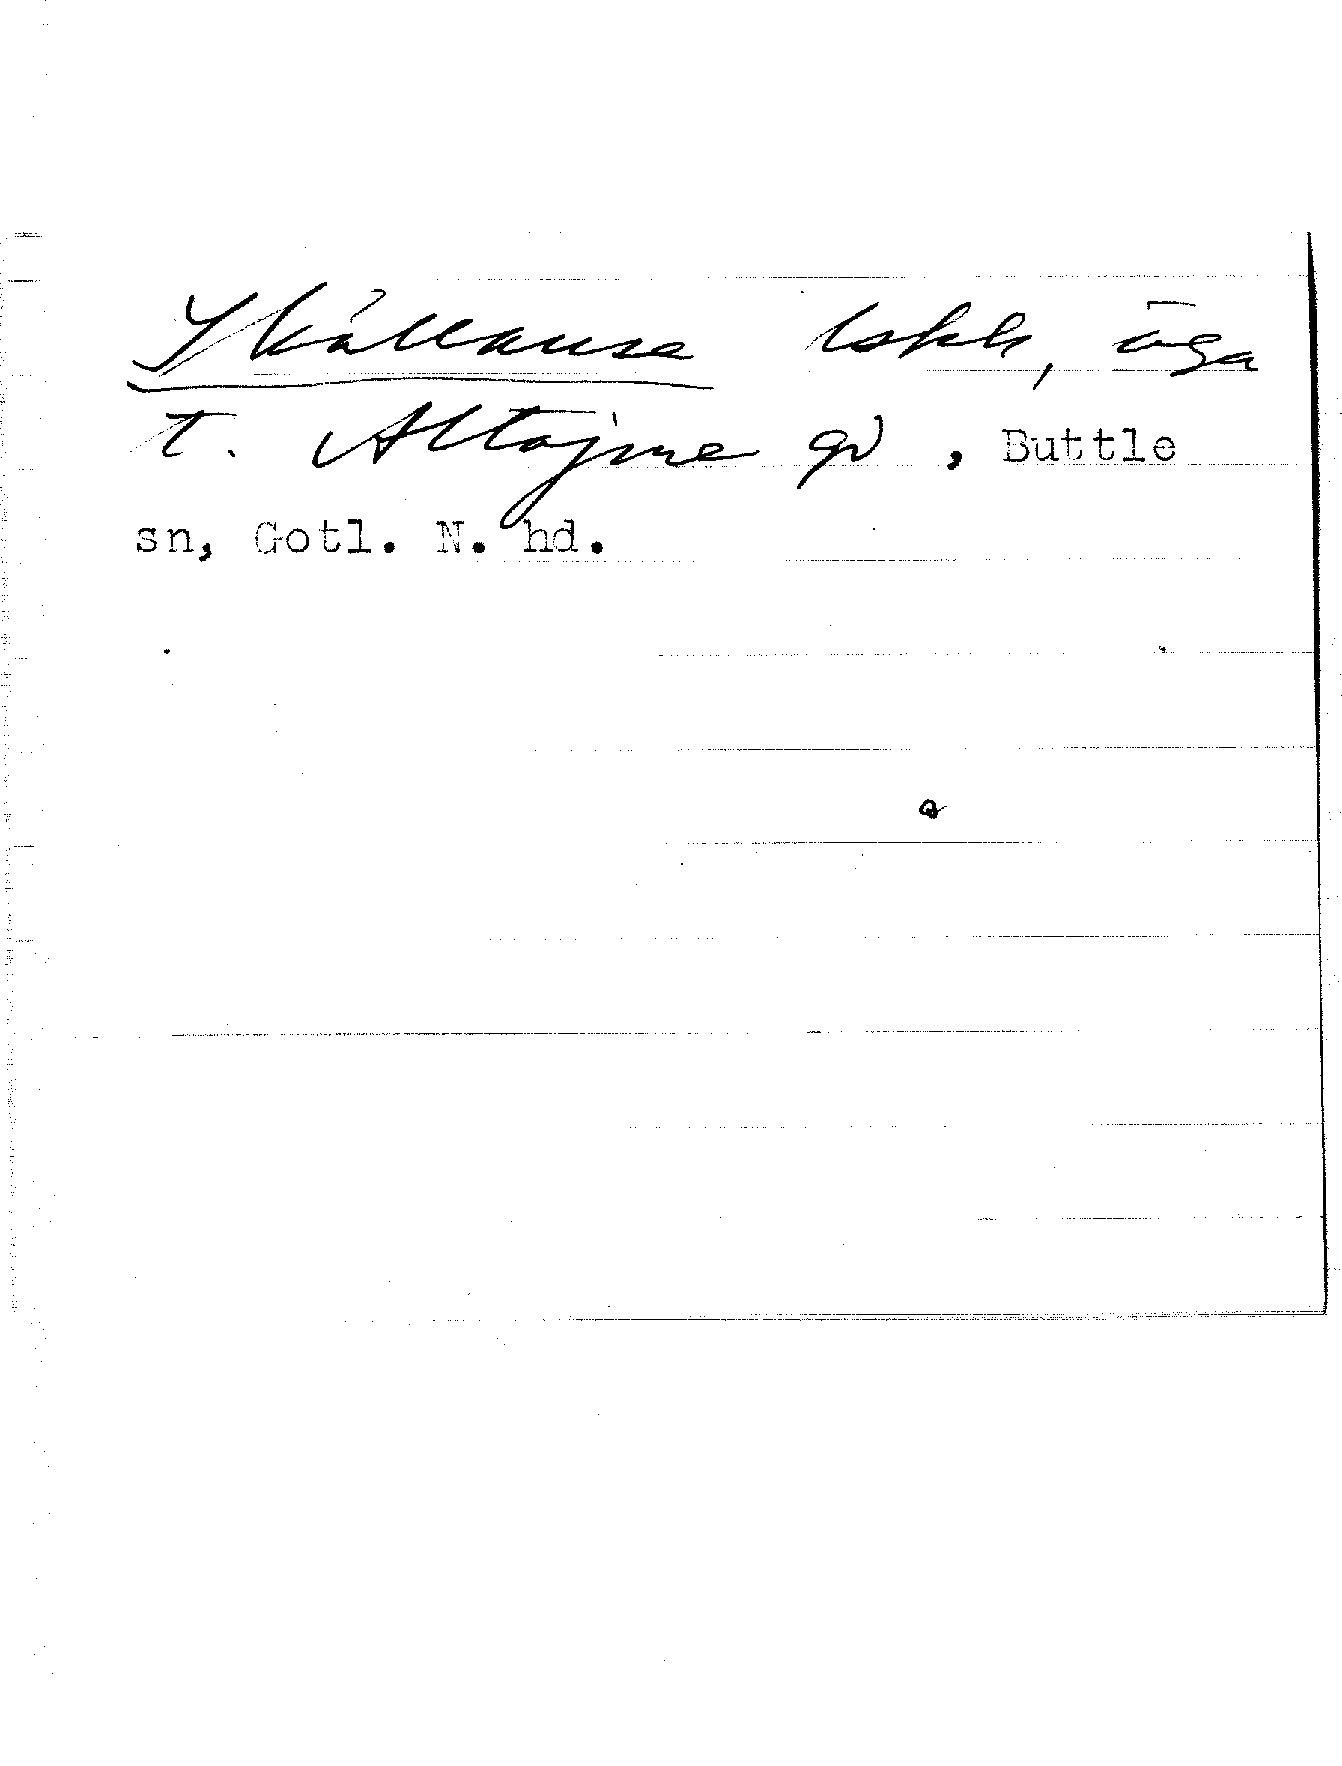 Skällause lskk, äga
t. Altajme gd, Buttle
sn, Gotl. N. hd.